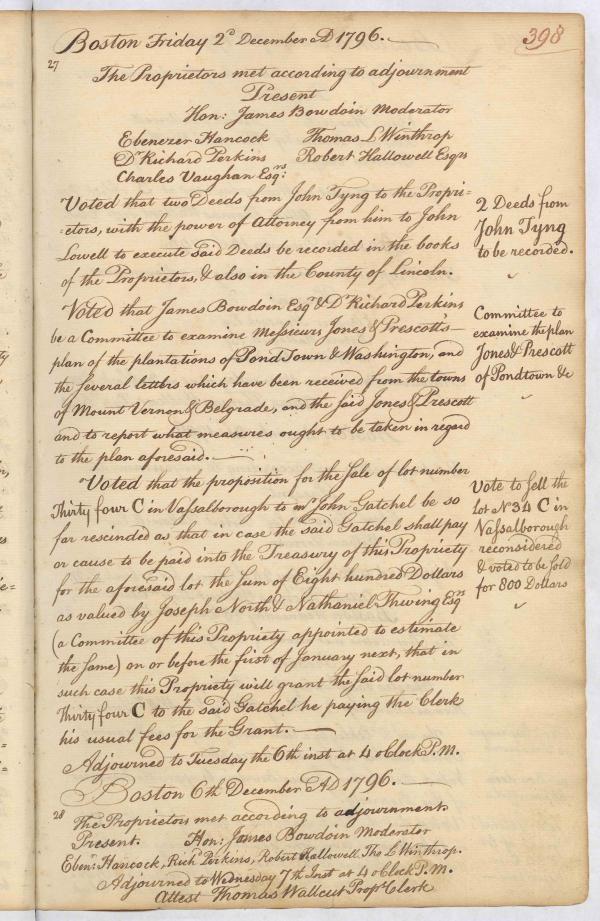 398
Boston Friday 2d December AD 1796.
27
The Proprietors met according to adjournment
Present
Hon: James Bowdoin Moderator
Ebenezer Hancock Thomas L Winthrop
Dr Richard Perkins Robert Hallowell Esqrs
Charles Vaughan Esqrs:
Voted that two Deeds from John Tyng to the Propri=
=etors, with the power of Attorney from him to John
Lowell to execute said Deeds be recorded in the books
of the Proprietors, & also in the County of Lincoln.
2 Deeds from
John Tyng
to be recorded.
Voted that James Bowdoin Esqr & Dr Richard Perkins
be a Committee to examine Messieurs Jones & Prescott's
plan of the plantations of Pond Town & Washington, and
the several letters which have been received from the towns
of Mount Vernon & Belgrade, and the said Jones & Prescott
and to report what measures ought to be taken in regard
to the plan aforesaid.
Committee to
examine the plan
Jones & Prescott
of Pondtown &c
Voted that the proposition for the Sale of lot number
Thirty four C in Vassalborough to mr John Gatchel be so
far rescinded as that in case the said Gatchel shall pay
or cause to be paid into the Treasury of this Propriety
for the aforesaid lot the Sum of Eight hundred Dollars
as valued by Joseph North & Nathaniel Thwing Esqrs
(a Committee of this Propriety appointed to estimate
the same) on or before the first of January next, that in
such case this Propriety will grant the said lot number
Thirty four C to the said Gatchel he paying the Clerk
his usual fees for the Grant.
Vote to sell the
lot No 34 C in
Vassalborough
reconsidered
& voted to be sold
for 800 Dollars
Adjourned to Tuesday the 6th inst at 4 oClock P.M.
Boston 6th December AD 1796.
28
The Proprietors met according to adjournment.
Present. Hon: James Bowdoin Moderator
Ebenr: Hancock, Richd Perkins, Robert Hallowell, Tho L Winthrop.
Adjourned to Wednesday 7th Inst at 4 oClock P.M.
Attest Thomas Wallcut Proprs Clerk